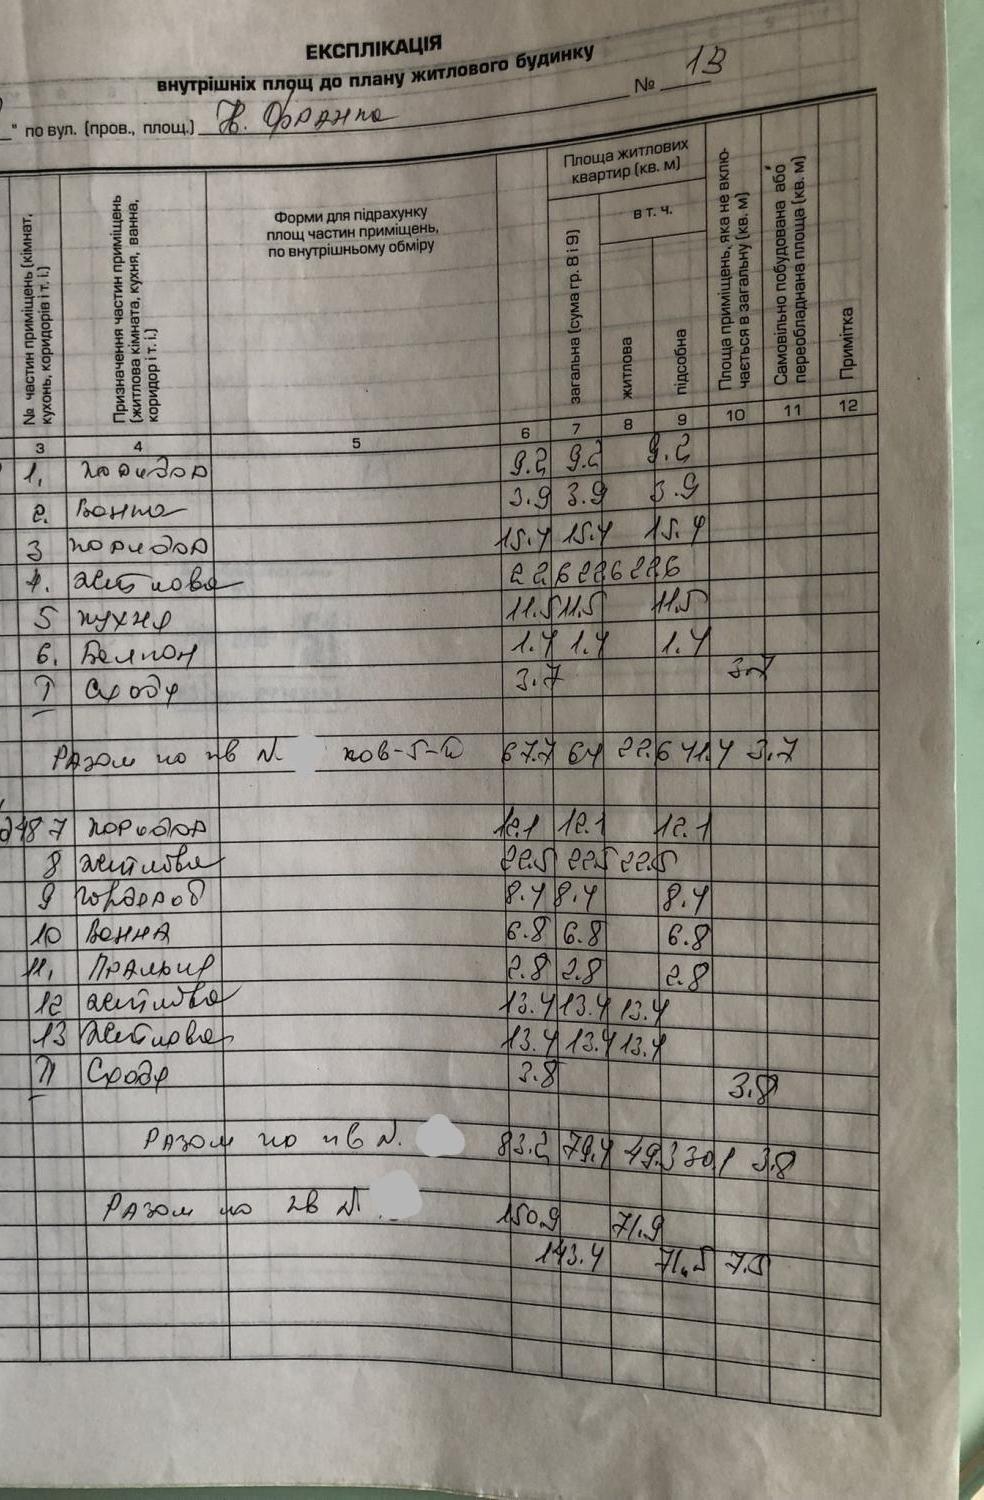 ЕКСПЛІКАЦІЯ
внутрішніх площ до плану житлового будинку
" по вул. (пров., площ.) Ів. Франка № 13
№ частин приміщень (кімнат, кухонь, коридорів і т. і.)
Призначення частин приміщень (житлова кімната, кухня, ванна, коридор і т. і.)
Форми для підрахунку
площ частин приміщень,
по внутрішньому обміру)
Площа житлових
квартир (кв. м)
загальна (сума гр. 8 і 9)
в т. ч.
житлова
підсобна
Площа приміщень, яка не включається в загальну (кв. м)
Самовільно побудована або переобладнана площа (кв. м)
Примітка
3 4 5 6 7 8 9 10 11 12
1. коридор 9.2 9.2 9.2
2. Ванна 3.9 3.9 3.9
3 коридор 15.4 15.4 15.4
4. житлова 22.6 22.6 22.6
5 кухня 11.5 11.5 11.5
6. Балкон 1.4 1.4 1.4
I Сходи 3.7 3.7
Разом по кв N. 67.7 64 22.6 41.4 3.7
7 коридор 12.1 12.1 12.1
8 житлова 22.5 22.5 22.5
9 гардероб 8.4 8.4 8.4
10 Ванна 6.8 6.8 6.8
11. Пральня 2.8 2.8 2.8
12 житлова 13.4 13.4 13.4
13 житлова 13.4 13.4 13.4
II Сходи 3.8 3.8
Разом по кв N. 83.2 79.4 49.3 30.1 3.8
Разом по 2кв N 150.9 71.9
143.4 71.5 7.5